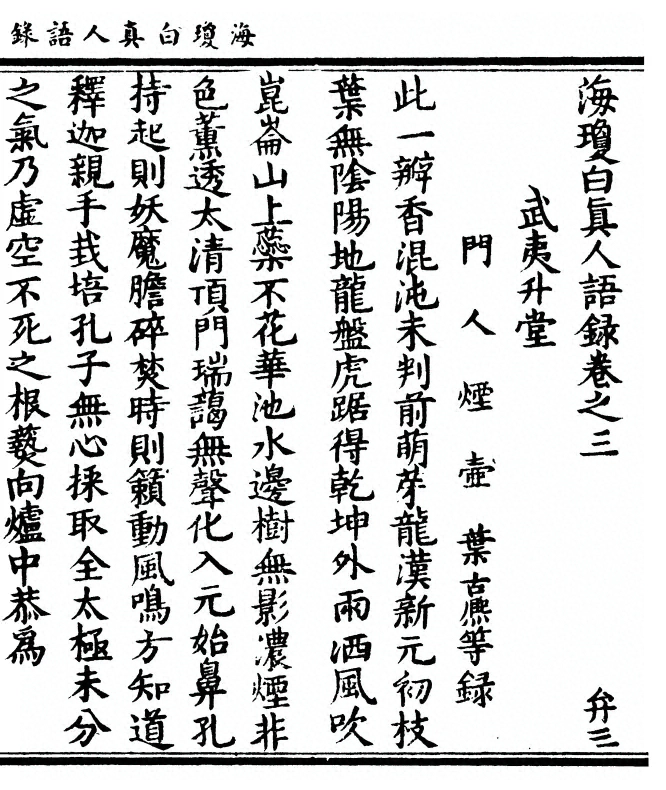 海瓊白真人語錄
海瓊白眞人語録卷之三 弁三
武夷升堂
門人煙壺葉古熈等録
此一瓣香混沌未判前萌芽龍漢新元初枝
葉無陰陽地龍盤虎踞得乾坤外雨洒風吹
崑崙山上蘂不花華池水邊樹無影濃煙非
色薰透太清頂門瑞藹無聲化入元始鼻孔
持起則妖魔膽碎焚時則籟動風鳴方知道
釋迦親手栽培孔子無心採取全太極未分
之氣乃虛空不死之根爇向爐中恭爲